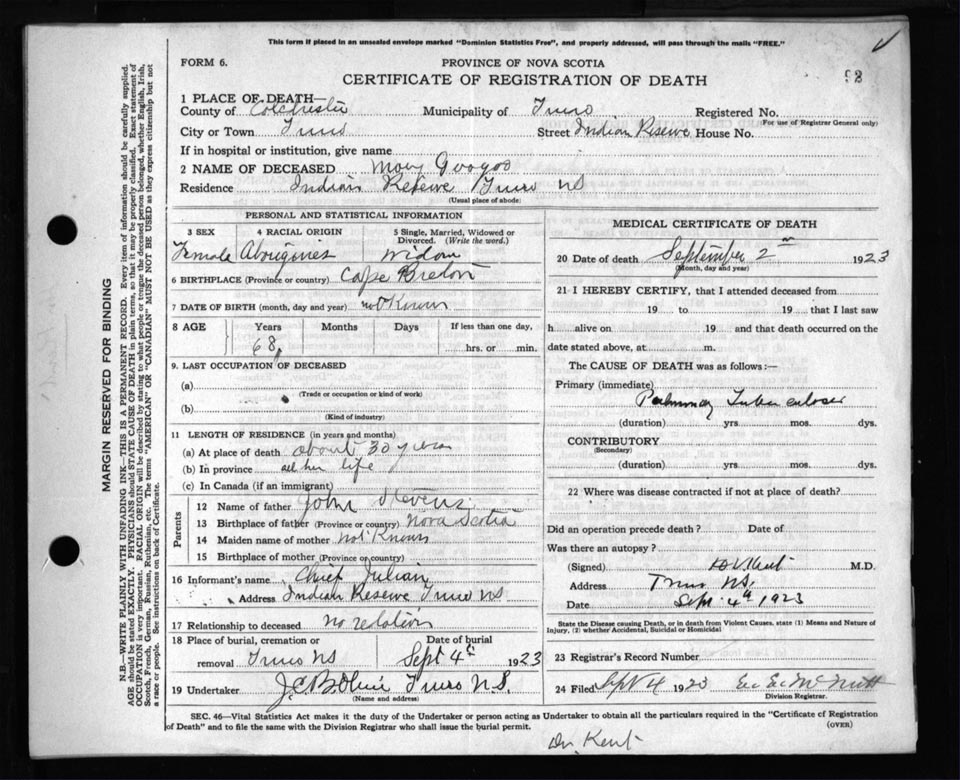 This form if placed in an unsealed envelope marked "Dominion Statistics Free", and properly addressed, will pass through the mails "FREE."
FORM 6.
PROVINCE OF NOVA SCOTIA
CERTIFICATE OF REGISTRATION OF DEATH
92
1 PLACE OF DEATH—
County of Colchester Municipality of Truro Registered No.
(For use of Registrar General only)
City or Town Truro Street Indian Reserve House No.
If in hospital or institution, give name
2 NAME OF DECEASED Mary Googoo
Residence Indian Reserve Truro NS
(Usual place of abode)
PERSONAL AND STATISTICAL INFORMATION
3 SEX 4 RACIAL ORIGIN 5 Single, Married, Widowed or Divorced. (Write the word.)
Female Aborigines Widow
6 BIRTHPLACE (Province or country) Cape Breton
7 DATE OF BIRTH (month, day and year) not Known
8 AGE Years Months Days If less than one day,
68 hrs. or min.
9. LAST OCCUPATION OF DECEASED
(a)
(Trade or occupation or kind of work)
(b)
(Kind of industry)
11 LENGTH OF RESIDENCE (in years and months)
(a) At place of death about 30 years
(b) In province all her life
(c) In Canada (if an immigrant)
Parents
12 Name of father John Stevens
13 Birthplace of father (Province or country) Nova Scotia
14 Maiden name of mother not Known
15 Birthplace of mother (Province or country)
16 Informant's name Chief Julian
Address Indian Reserve Truro NS
17 Relationship to deceased no relation
18 Place of burial, cremation or removal Truro NS
Date of burial Sept 4th 1923
19 Undertaker Truro N.S.
(Name and address)
MEDICAL CERTIFICATE OF DEATH
20 Date of death September 2 1923
(Month, day and year)
21 I HEREBY CERTIFY, that I attended deceased from
19 to 19 that I last saw
h alive on 19 and that death occurred on the
date stated above, at m.
The CAUSE OF DEATH was as follows:—
Primary (immediate)
Pulmonary Tuberculosis
(duration) yrs. mos. dys.
CONTRIBUTORY
(Secondary)
(duration) yrs. mos. dys.
22 Where was disease contracted if not at place of death?
Did an operation precede death? Date of
Was there an autopsy?
(Signed) Kent M.D.
Address Truro NS.
Date Sept 4th 1923
State the Disease causing Death, or in death from Violent Causes, state (1) Means and Nature of
Injury, (2) whether Accidental, Suicidal or Homicidal
23 Registrar's Record Number
24 Filed Sept 4 1923 McNutt
Division Registrar.
SEC. 46—Vital Statistics Act makes it the duty of the Undertaker or person acting as Undertaker to obtain all the particulars required in the "Certificate of Registration
of Death" and to file the same with the Division Registrar who shall issue the burial permit.
(OVER)
Dr. Kent
MARGIN RESERVED FOR BINDING
N.B.—WRITE PLAINLY WITH UNFADING INK—THIS IS A PERMANENT RECORD. Every item of information should be carefully supplied.
AGE should be stated EXACTLY. PHYSICIANS should STATE CAUSE OF DEATH in plain terms, so that it may be properly classified. Exact statement of
OCCUPATION is very important. RACIAL ORIGIN will be described by stating to what people or tongue the deceased person belonged, whether English, Irish,
Scotch, French, German, Russian, Ruthenian, etc. The terms "AMERICAN" OR "CANADIAN" MUST NOT BE USED as they express citizenship but not
a race or people. See instructions on back of Certificate.